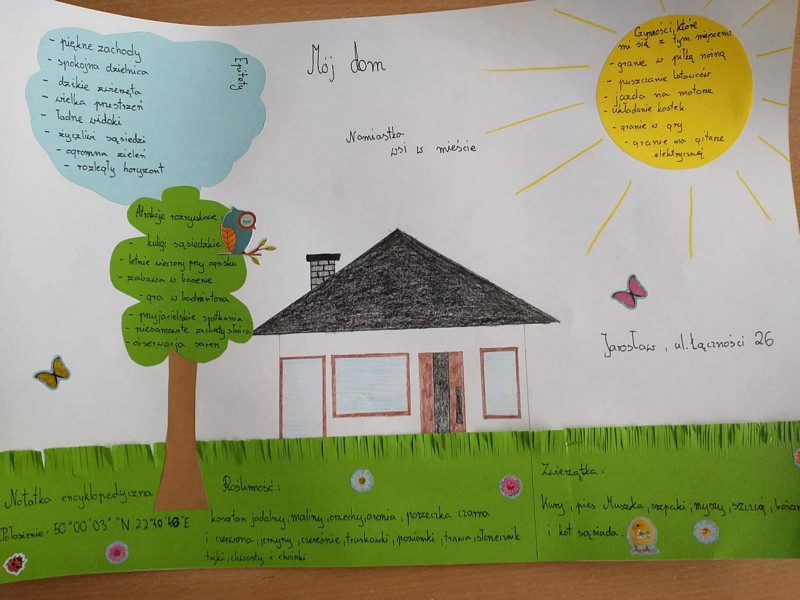 Mój dom
Namiastka
wsi w mieście
Epitety
- piękne zachody
- spokojna dzielnica
- dzikie zwierzęta
- wielka przestrzeń
- ładne widoki
- życzliwi sąsiedzi
- ogromna zieleń
- rozległy horyzont
Czynności, które
mi się z tym miejscem
- granie w piłkę nożną
- puszczanie latawców
- jazda na motorze
- układanie kostek
- granie w gry
- granie na gitarze
elektrycznej
Atrakcje rozrywkowe:
- kuligi sąsiedzkie
- letnie wieczory przy ognisku
- zabawa w basenie
- gra w badmintona
- przyjacielskie spotkania
- niesamowite zachody słońca
- obserwacja saren
Jarosław, ul. Łączności 26
Notatka encyklopedyczna
Położenie: 50°00'03" N 22°40'46"E
Roślinność:
kasztan jadalny, maliny, orzechy, aronia, porzeczka czarna
i czerwona, jeżyny, czereśnie, truskawki, poziomki, trawa, słonecznik
tujki, chwasty i choinki
Zwierzątka:
Kury, pies Muszka, szpaki, myszy,
i kot sąsiada.